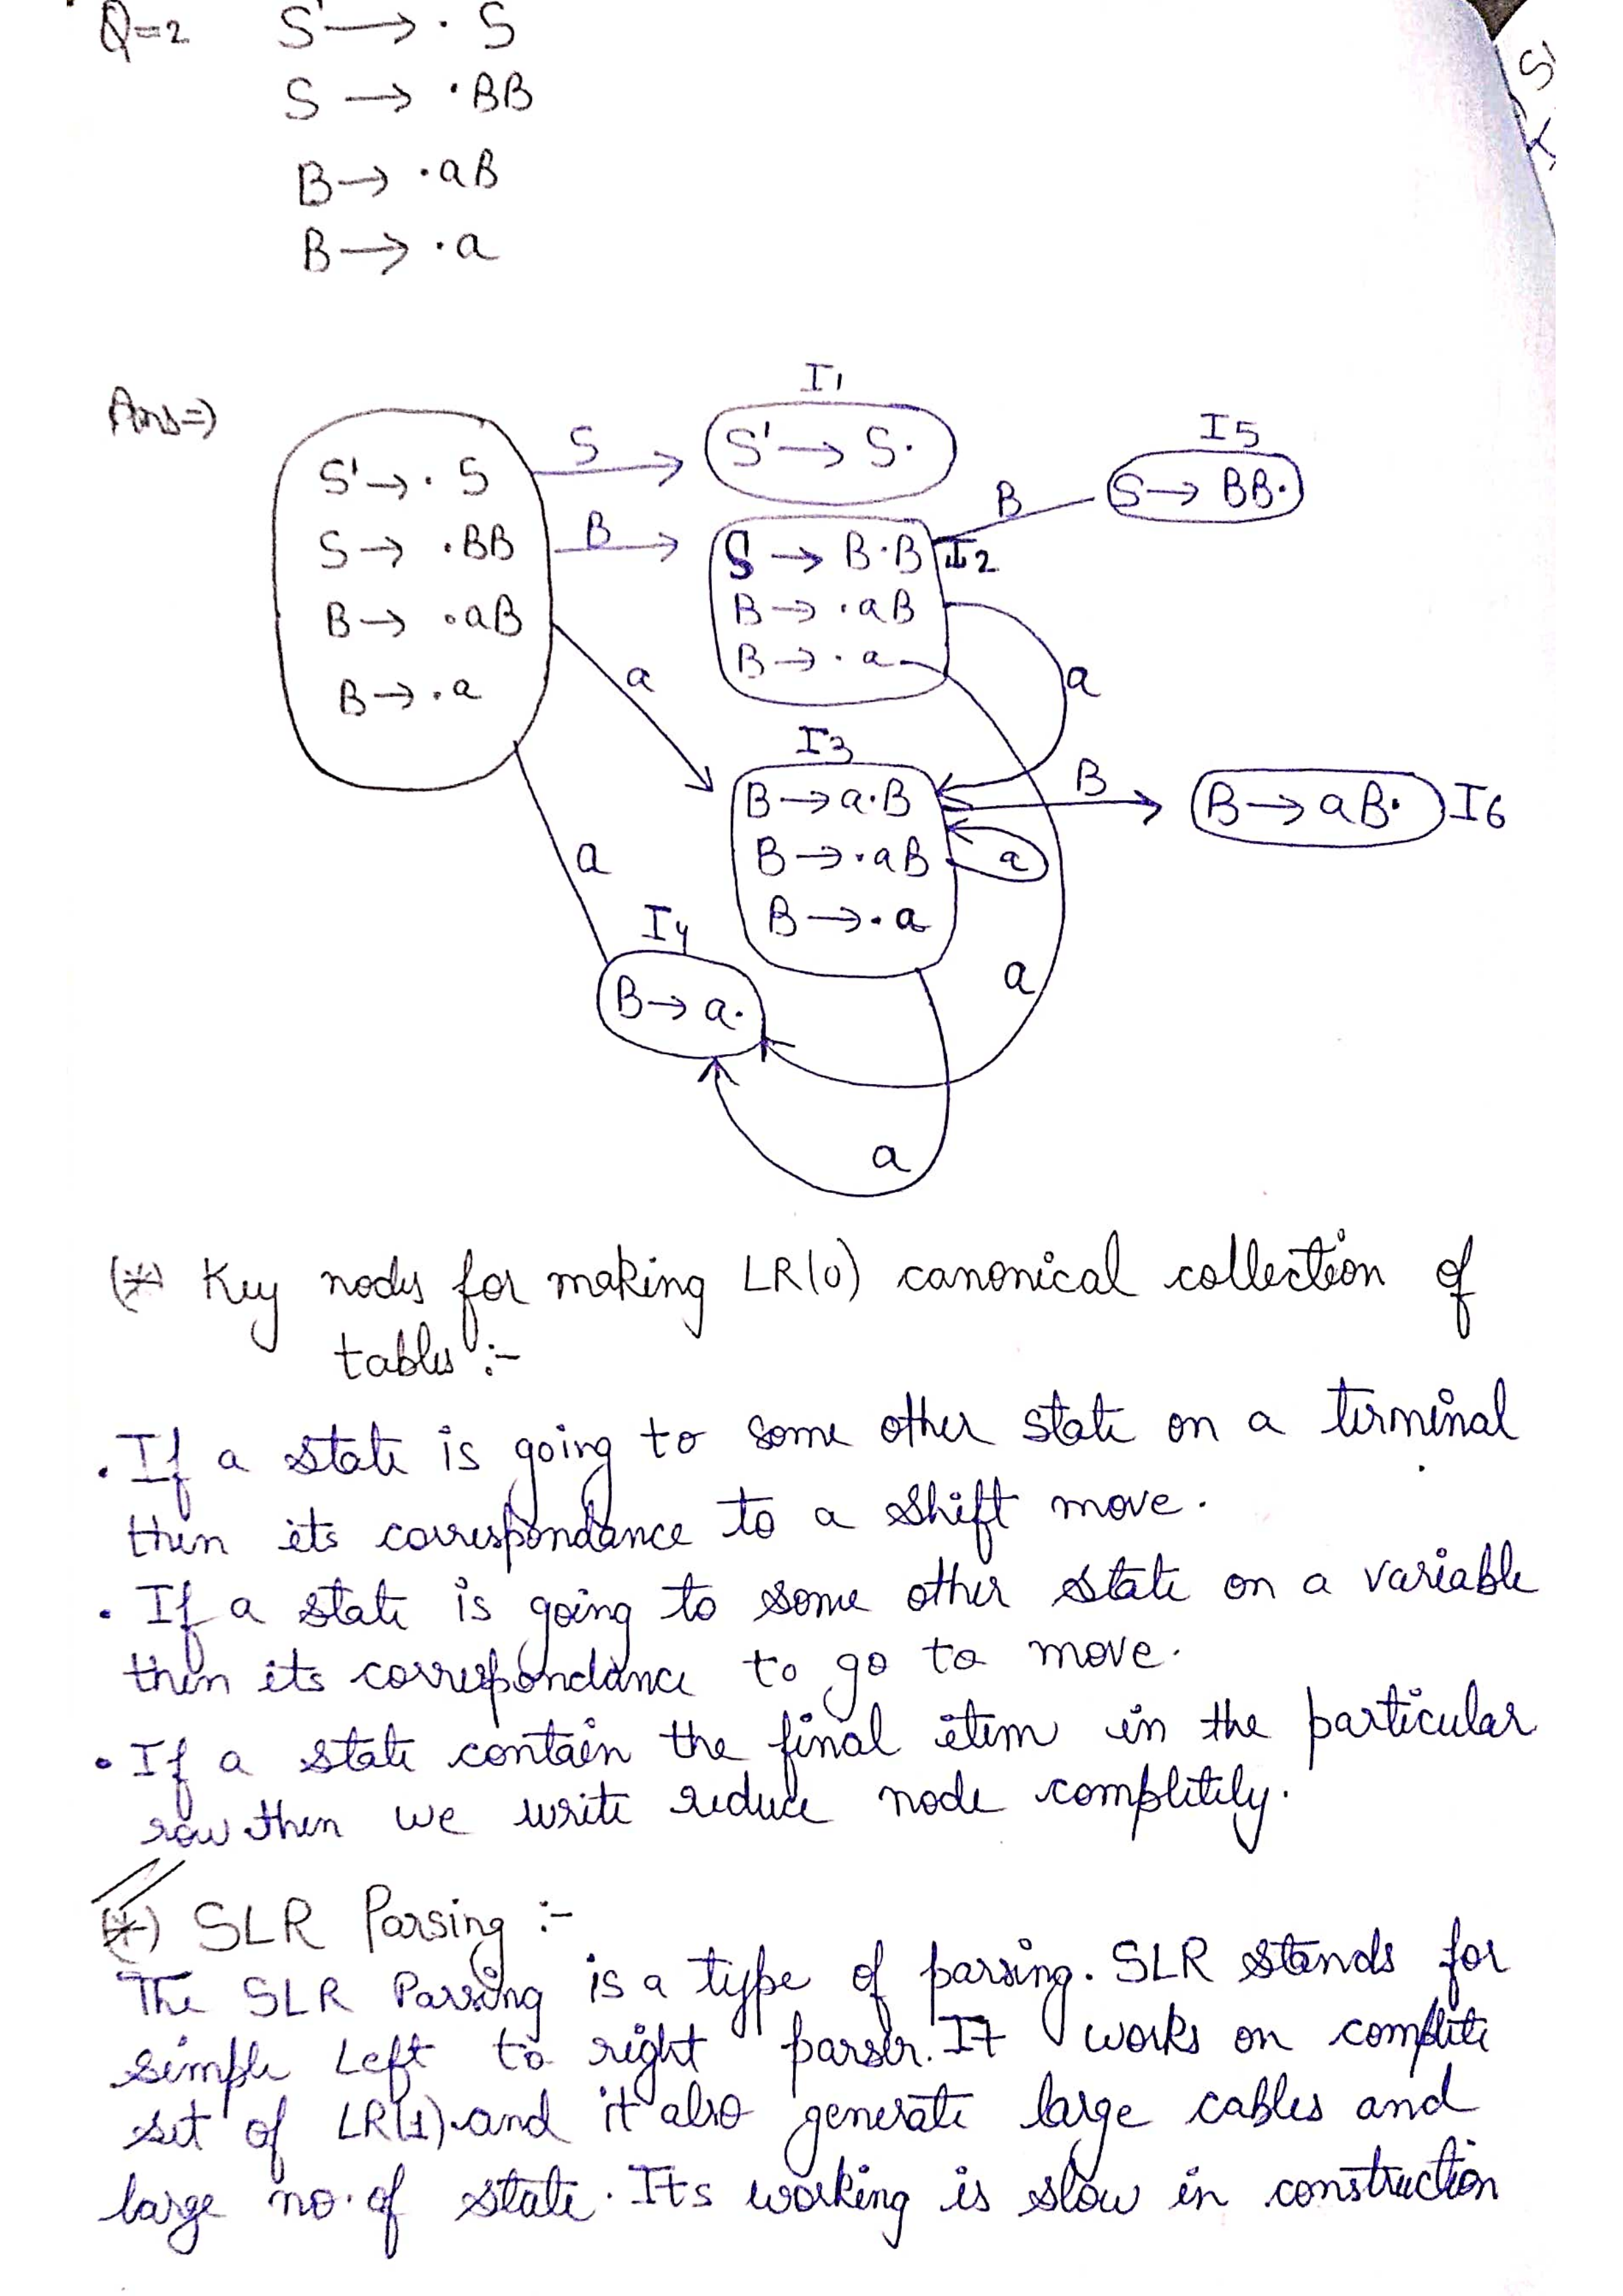 Q=2 S' → . S
S → .BB
B → .aB
B → .a
Ans=)
S' → . S
S → .BB
B → .aB
B → .a
S
B
a
a
I1
S' → S.
I2
S → B.B
B → .aB
B → .a
B
I5
S → BB.
a
a
I3
B → a.B
B → .aB
B → .a
B
a
a
B → aB. I6
I4
B → a.
(*) Key nodes for making LR(0) canonical collection of
tables :-
. If a state is going to some other state on a terminal
then its correspondance to a shift move.
. If a state is going to some other state on a variable
then its correspondance to go to move.
. If a state contain the final item in the particular
row then we write reduce node complitily.
(*) SLR Parsing :-
The SLR Parsing is a type of parsing. SLR stands for
simple Left to right parser. It works on complite
set of LR(1) and it also generate large cables and
large no. of state. Its working is slow in construction